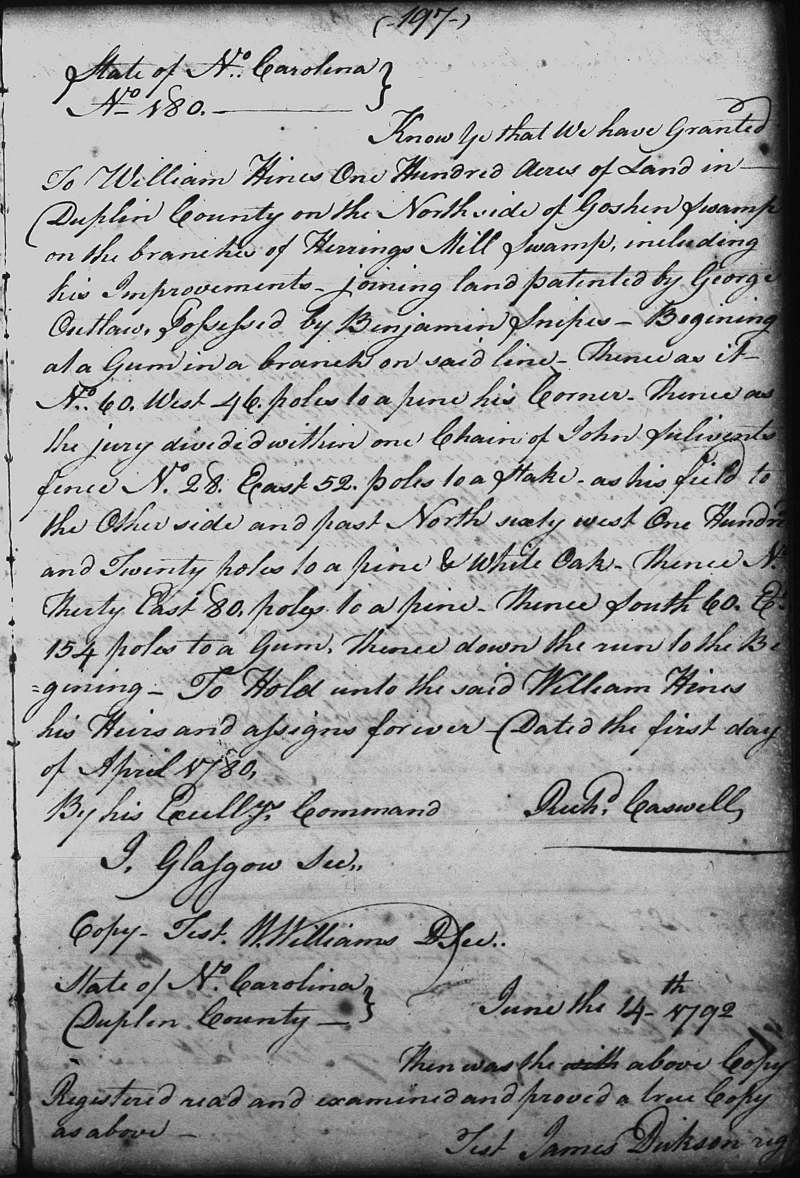 (-197-)
State of No. Carolina }
No. 180.
Know Ye that We have Granted
To William Hines One Hundred Acres of Land in
Duplin County on the North side of Goshen Swamp
on the branches of Herrings Mill Swamp, including
his Improvements - joining land patented by George
Outlaw, Possessed by Benjamin Snipes - Begining
at a Gum in a branch on said line - Thence as it
No. 60. West 46. poles to a pine his Corner - Thence as
the jury divided within one Chain of John Sulivents
fence No. 28. East 52. poles to a Stake - as his field to
the Other side and past North sixty west One Hundred
and Twenty poles to a pine & White Oak - Thence No.
Thirty East 80. poles to a pine - Thence South 60. Et.
154 poles to a Gum, Thence down the run to the Be
=gining - To Hold unto the said William Hines
his Heirs and assigns forever - Dated the first day
of April 1780,
By his Excelly. Command Richd. Caswell,
J. Glasgow Sec..
Copy - Test. W. Williams D Sec..
State of No. Carolina }
Duplin County - June the 14th 1792
Then was the with above Copy
Registered read and examined and proved a true Copy
as above -
Test James Dickson reg